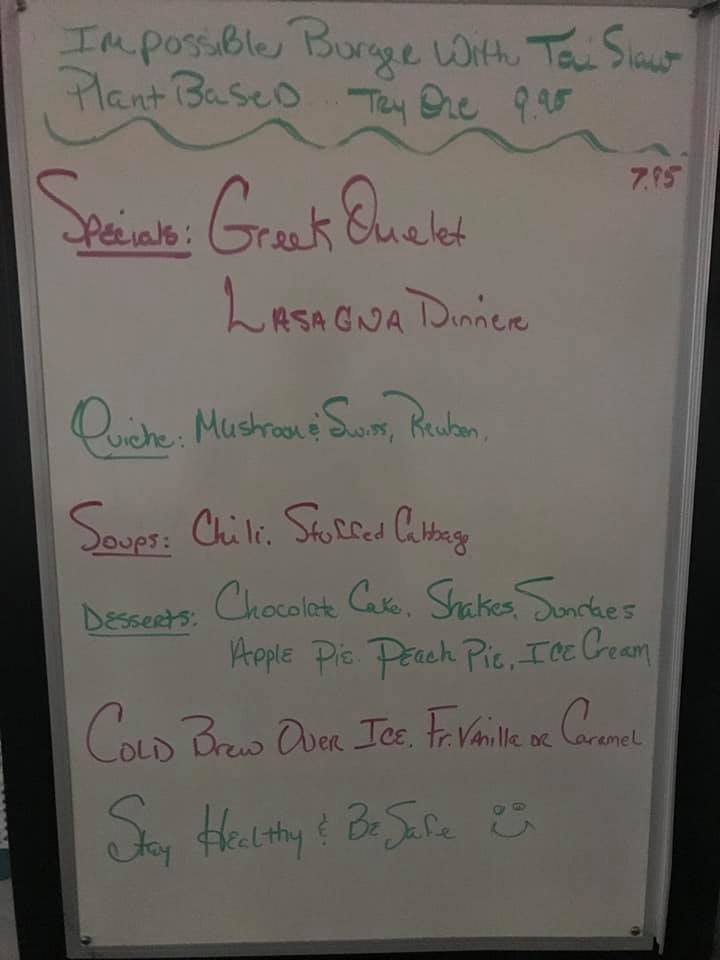 Impossible Burge With Tai Slaw
Plant Based .. Try One 9.95
7.95
Specials: Greek Omelet
Lasagna Dinner
Quiche: Mushroom & Swiss, Reuben.
Soups: Chili. Stuffed Cabbage
Desserts: Chocolate Cake. Shakes. Sundaes
Apple Pie. Peach Pie, Ice Cream
Cold Brew Over Ice. Fr. Vanilla or Caramel
Stay Healthy & Be Safe